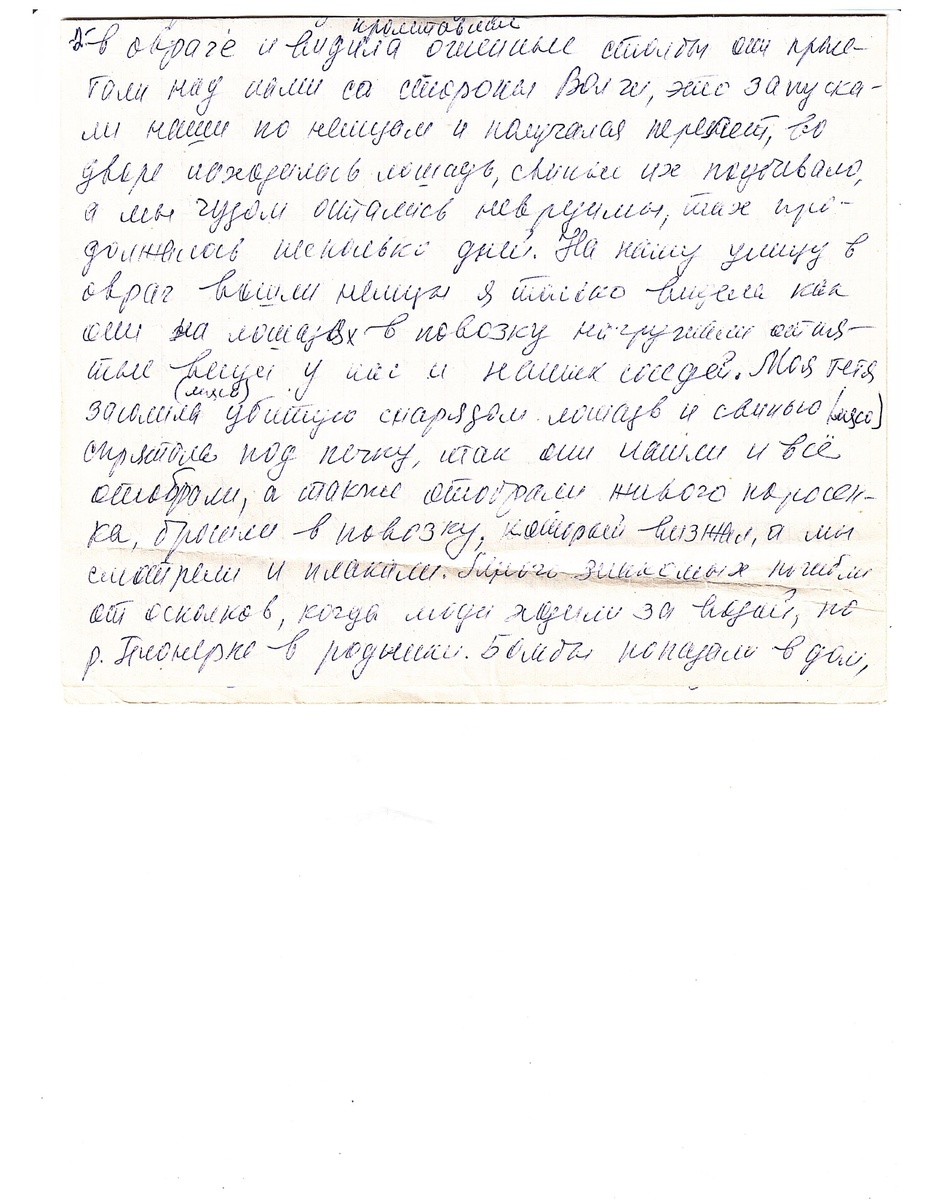 2- в овраге и видила огненные столбы они проле-
тали над нами со стороны Волги, это запуска-
ли наши по немцам и получался перелет, во
дворе находилась лошадь, свиньи их поубивало,
а мы чудом остались невредимы, так про-
должалось несколько дней. На нашу улицу в
овраг вошли немцы я только видела как
они на лошадях в повозку нагружали отня-
тые вещи у нас и наших соседей. Моя тетя
(мясо)
засолила убитую снарядом лошадь и свинью (мясо)
спрятала под печку, так они нашли и всё
отобрали, а также отобрали живого поросен-
ка, бросили в повозку, который визжал, а мы
смотрели и плакали. Много знакомых погибли
от осколков, когда люди ходили за водой, по
р. Пионерке в роднички. Бомбы попадали в дом,